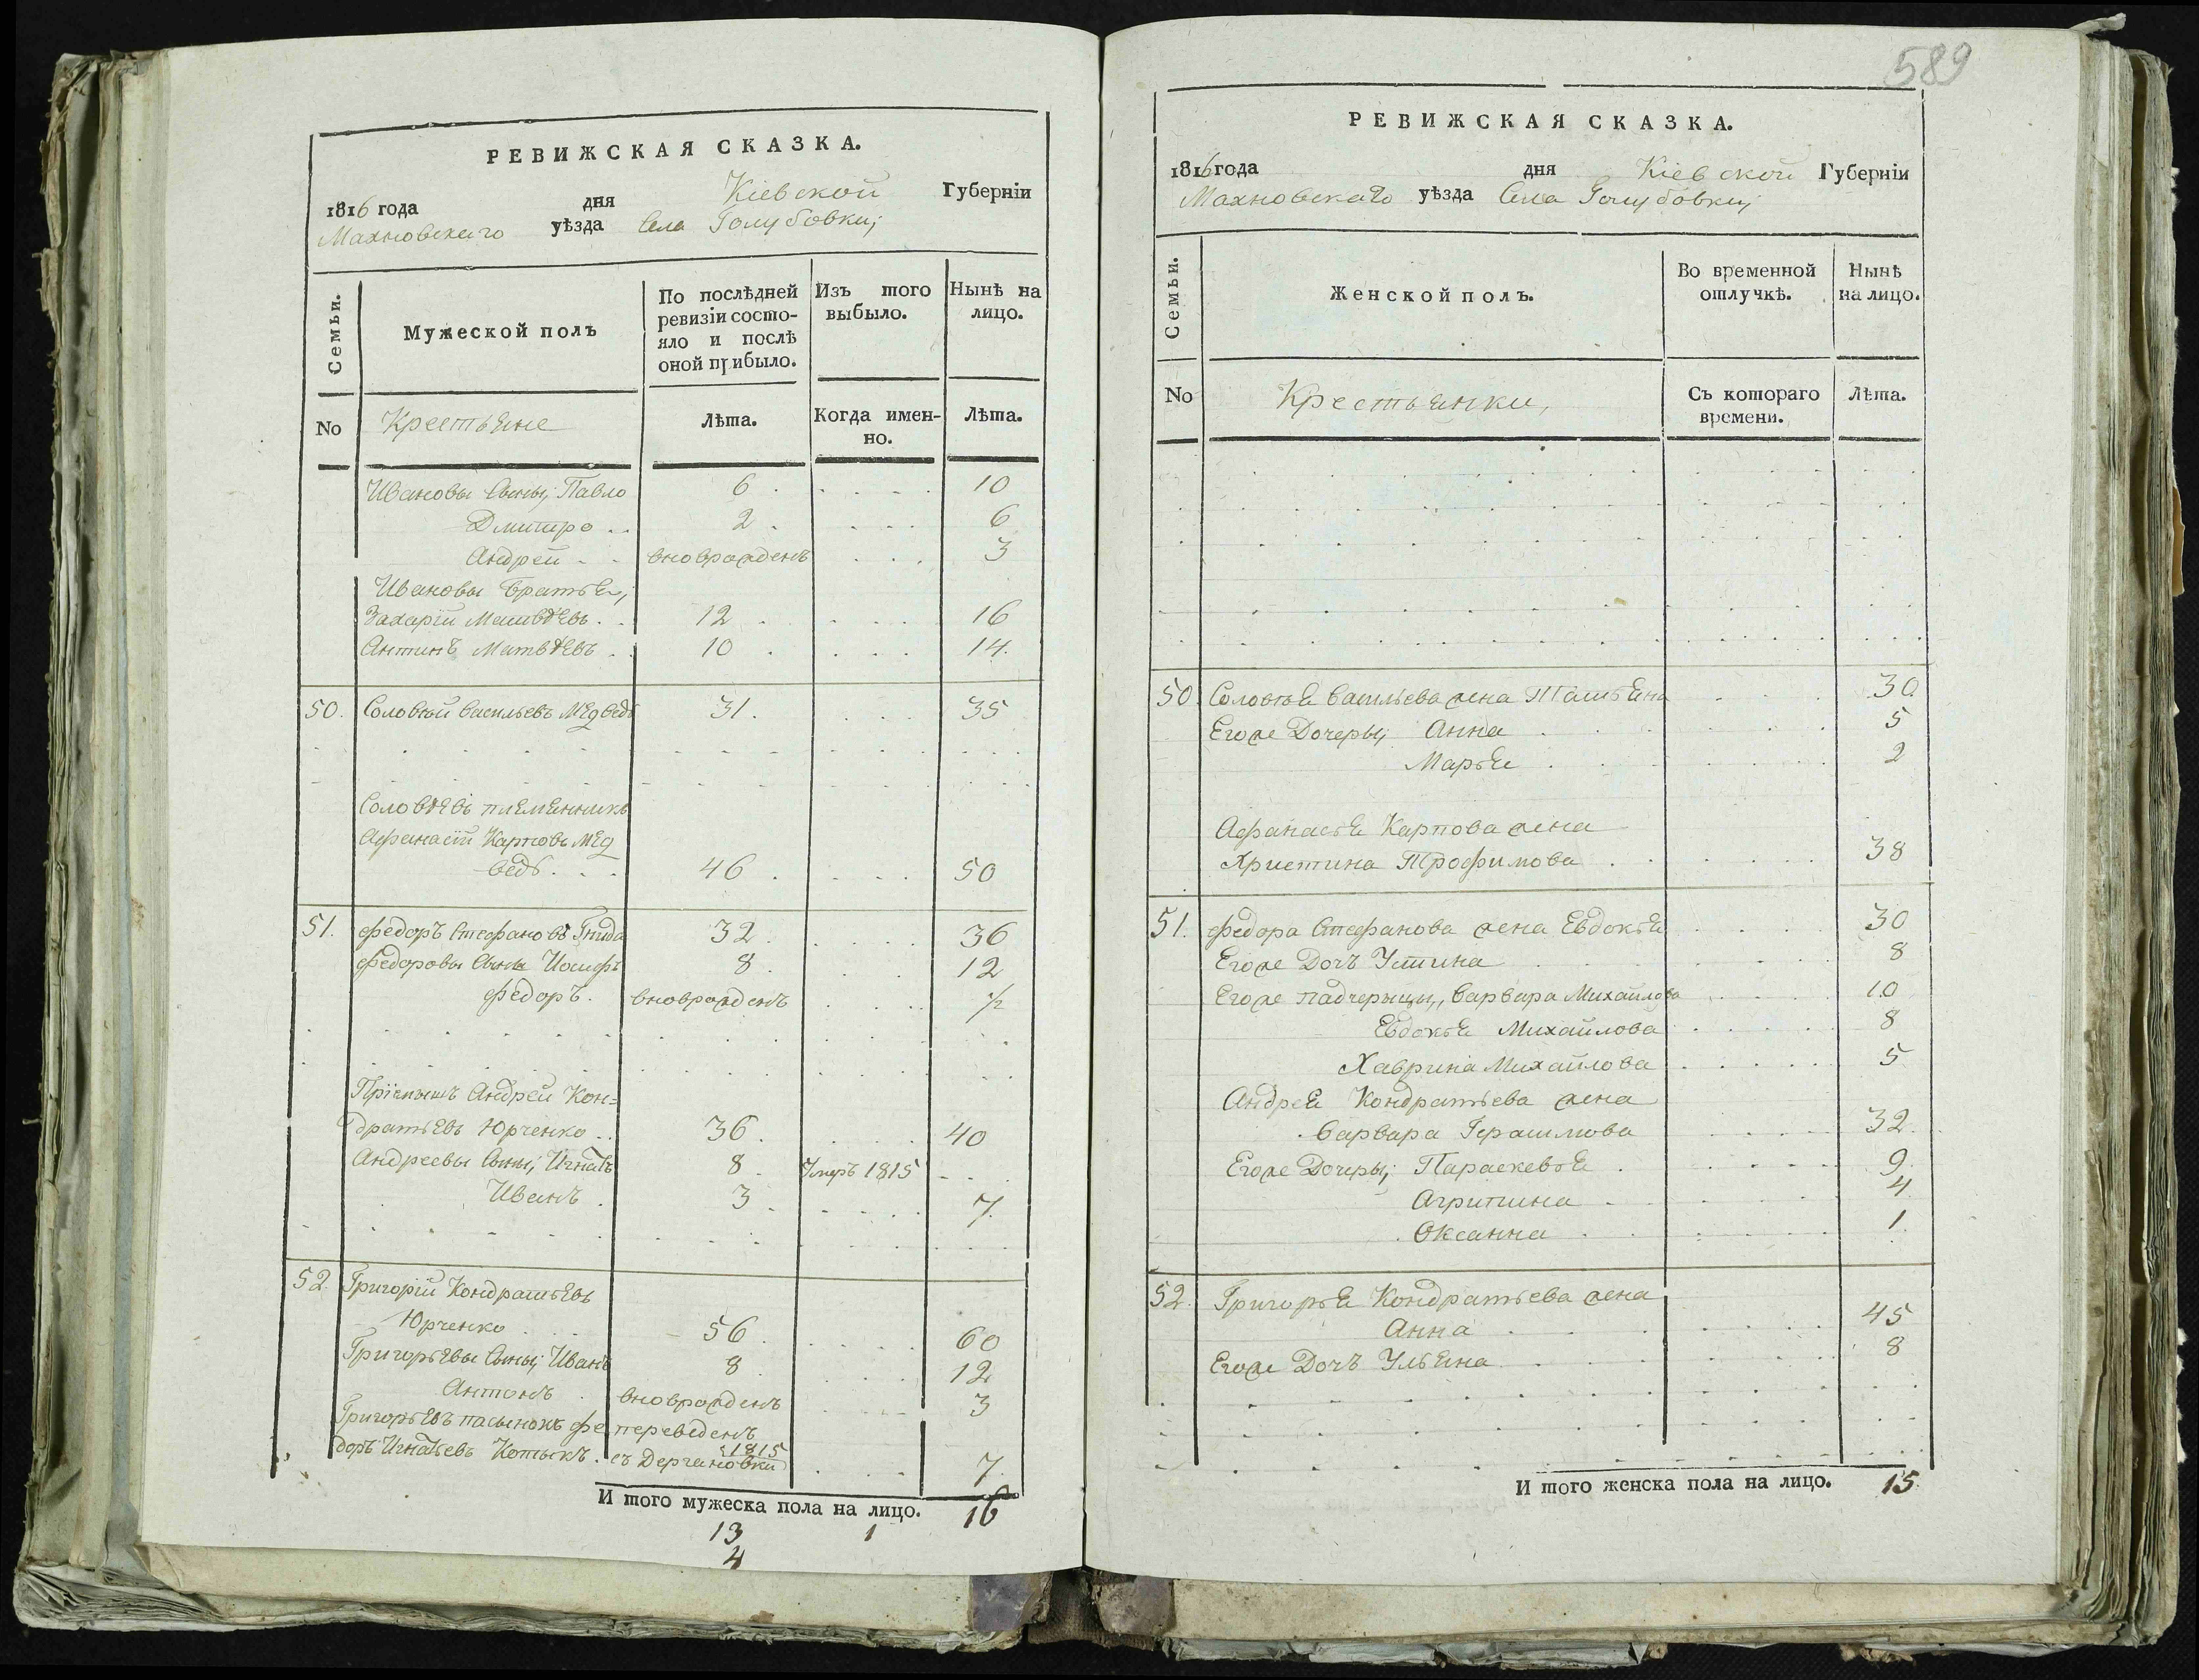 РЕВИЖСКАЯ СКАЗКА.
1816 года дня Кіевской Губерніи
Махновскаго уѣзда Села Голубовки;
Семьи.
Мужеской полъ
По послѣдней ревизіи состо-
яло и послѣ
оной прибыло.
Изъ того выбыло.
Нынѣ на лицо.
No Крестьяне Лѣта. Когда имен-
но. Лѣта.
Ивановы Сыны; Павло 6 10
Дмитро 2 6
Андрей вноврожденъ 3
Ивановы Братья;
Захарій Матвѣевъ 12 16
Антинъ Матвѣевъ 10 14
50. Соловѣй Васильевъ Медведь 31. 35
Соловѣевъ племенникъ
Афанасій Карповъ Мед
ведь 46 50
51. Федоръ Стефановъ Гнида 32. 36
Федоровы Сыны Иосифъ 8. 12
Федоръ. вноврожденъ ½
Андрей Кон=
дратьевъ Юрченко 36. 40
Андреевы Сыны; Игнатъ 8. Умеръ 1815
Иванъ 3 7
52. Григорій Кондратьевъ
Юрченко 56 60
Григорьевы Сыны; Иванъ 8 12
Антонъ вноврожденъ 3
Григорьевъ пасынокъ Фе переведенъ
доръ Игнатьевъ Котыкъ. 1815
съ Дергановки 7
И того мужеска пола на лицо. 16
13 1
4
589
РЕВИЖСКАЯ СКАЗКА.
1816 года дня Кіевской Губерніи
Махновскаго уѣзда Села Голубовки;
Семьи.
Женской полъ.
Во временной отлучкѣ.
Нынѣ на лицо.
No Крестьянки, Съ котораго
времени. Лѣта.
50. Соловья Васильева жена Татьяна 30
Егоже Дочеры; Анна 5
Марья 2
Афанасья Карпова жена
Христина Трофимова 38
51. Федора Стефанова жена Евдокья 30
Егоже Дочъ Устина 8
Егоже падчерыцы, Варвара Михайлова 10
Евдокья Михайлова 8
Хаврина Михайлова 5
Андрея Кондратьева жена
Варвара Герасимова 32.
Егоже Дочеры; Параскевья 9.
Агрипина 4
Оксанна 1.
52. Григорья Кондратьева жена
Анна 45
Егоже Дочъ Ульяна 8
И того женска пола на лицо. 15.